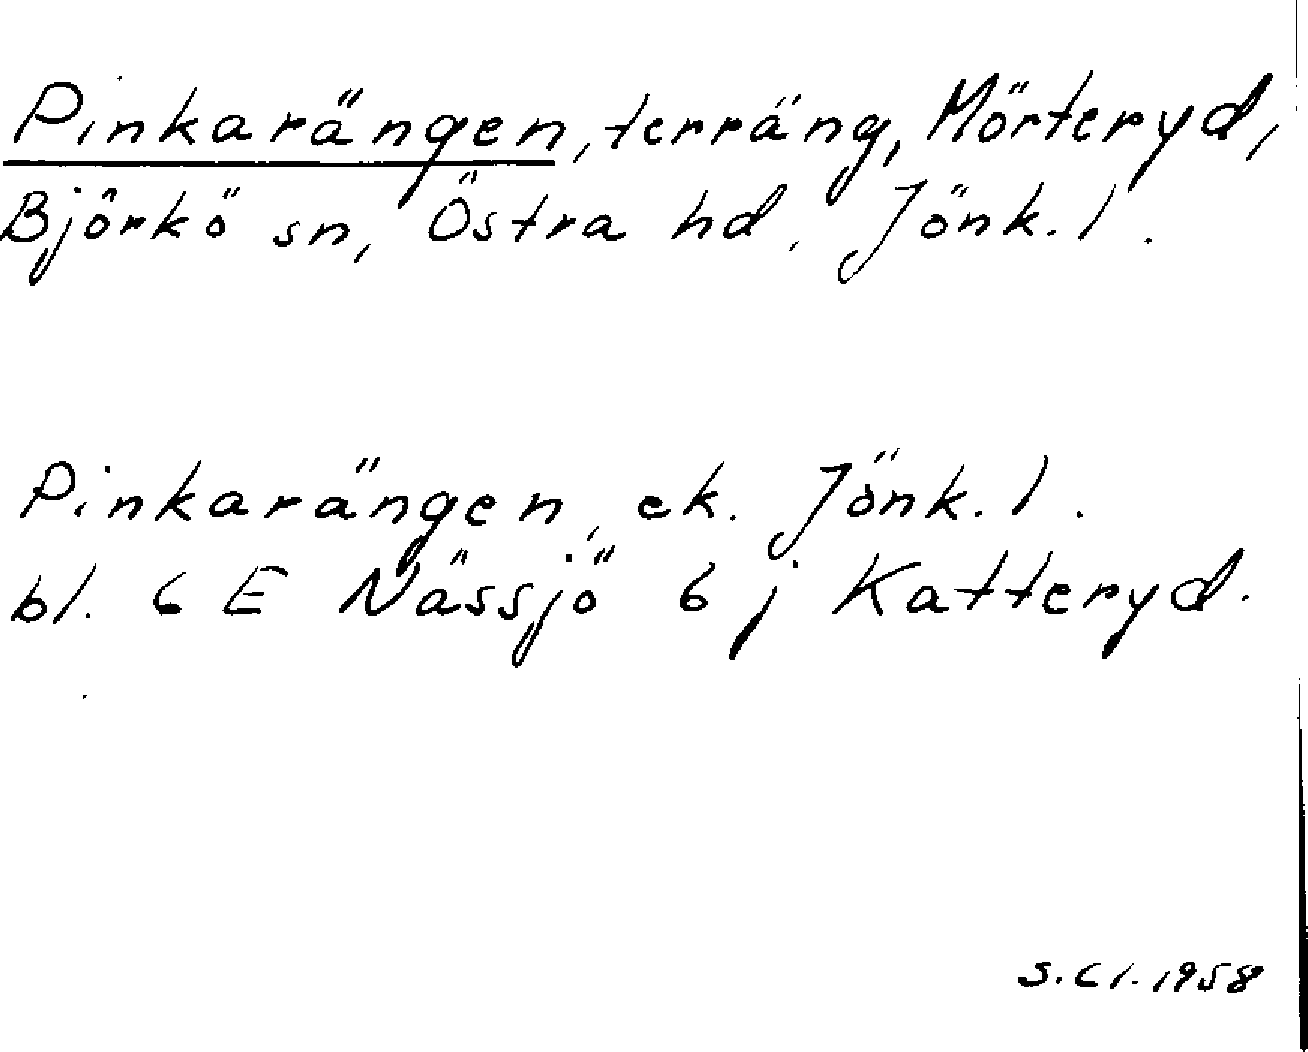 Pinkarängen, terräng, Mörteryd,
Björkö sn, Östra hd, Jönk. l.
Pinkarängen, ek. Jönk. l.
bl. 6 E Nässjö 6 j Katteryd.
S. Cl. 1958